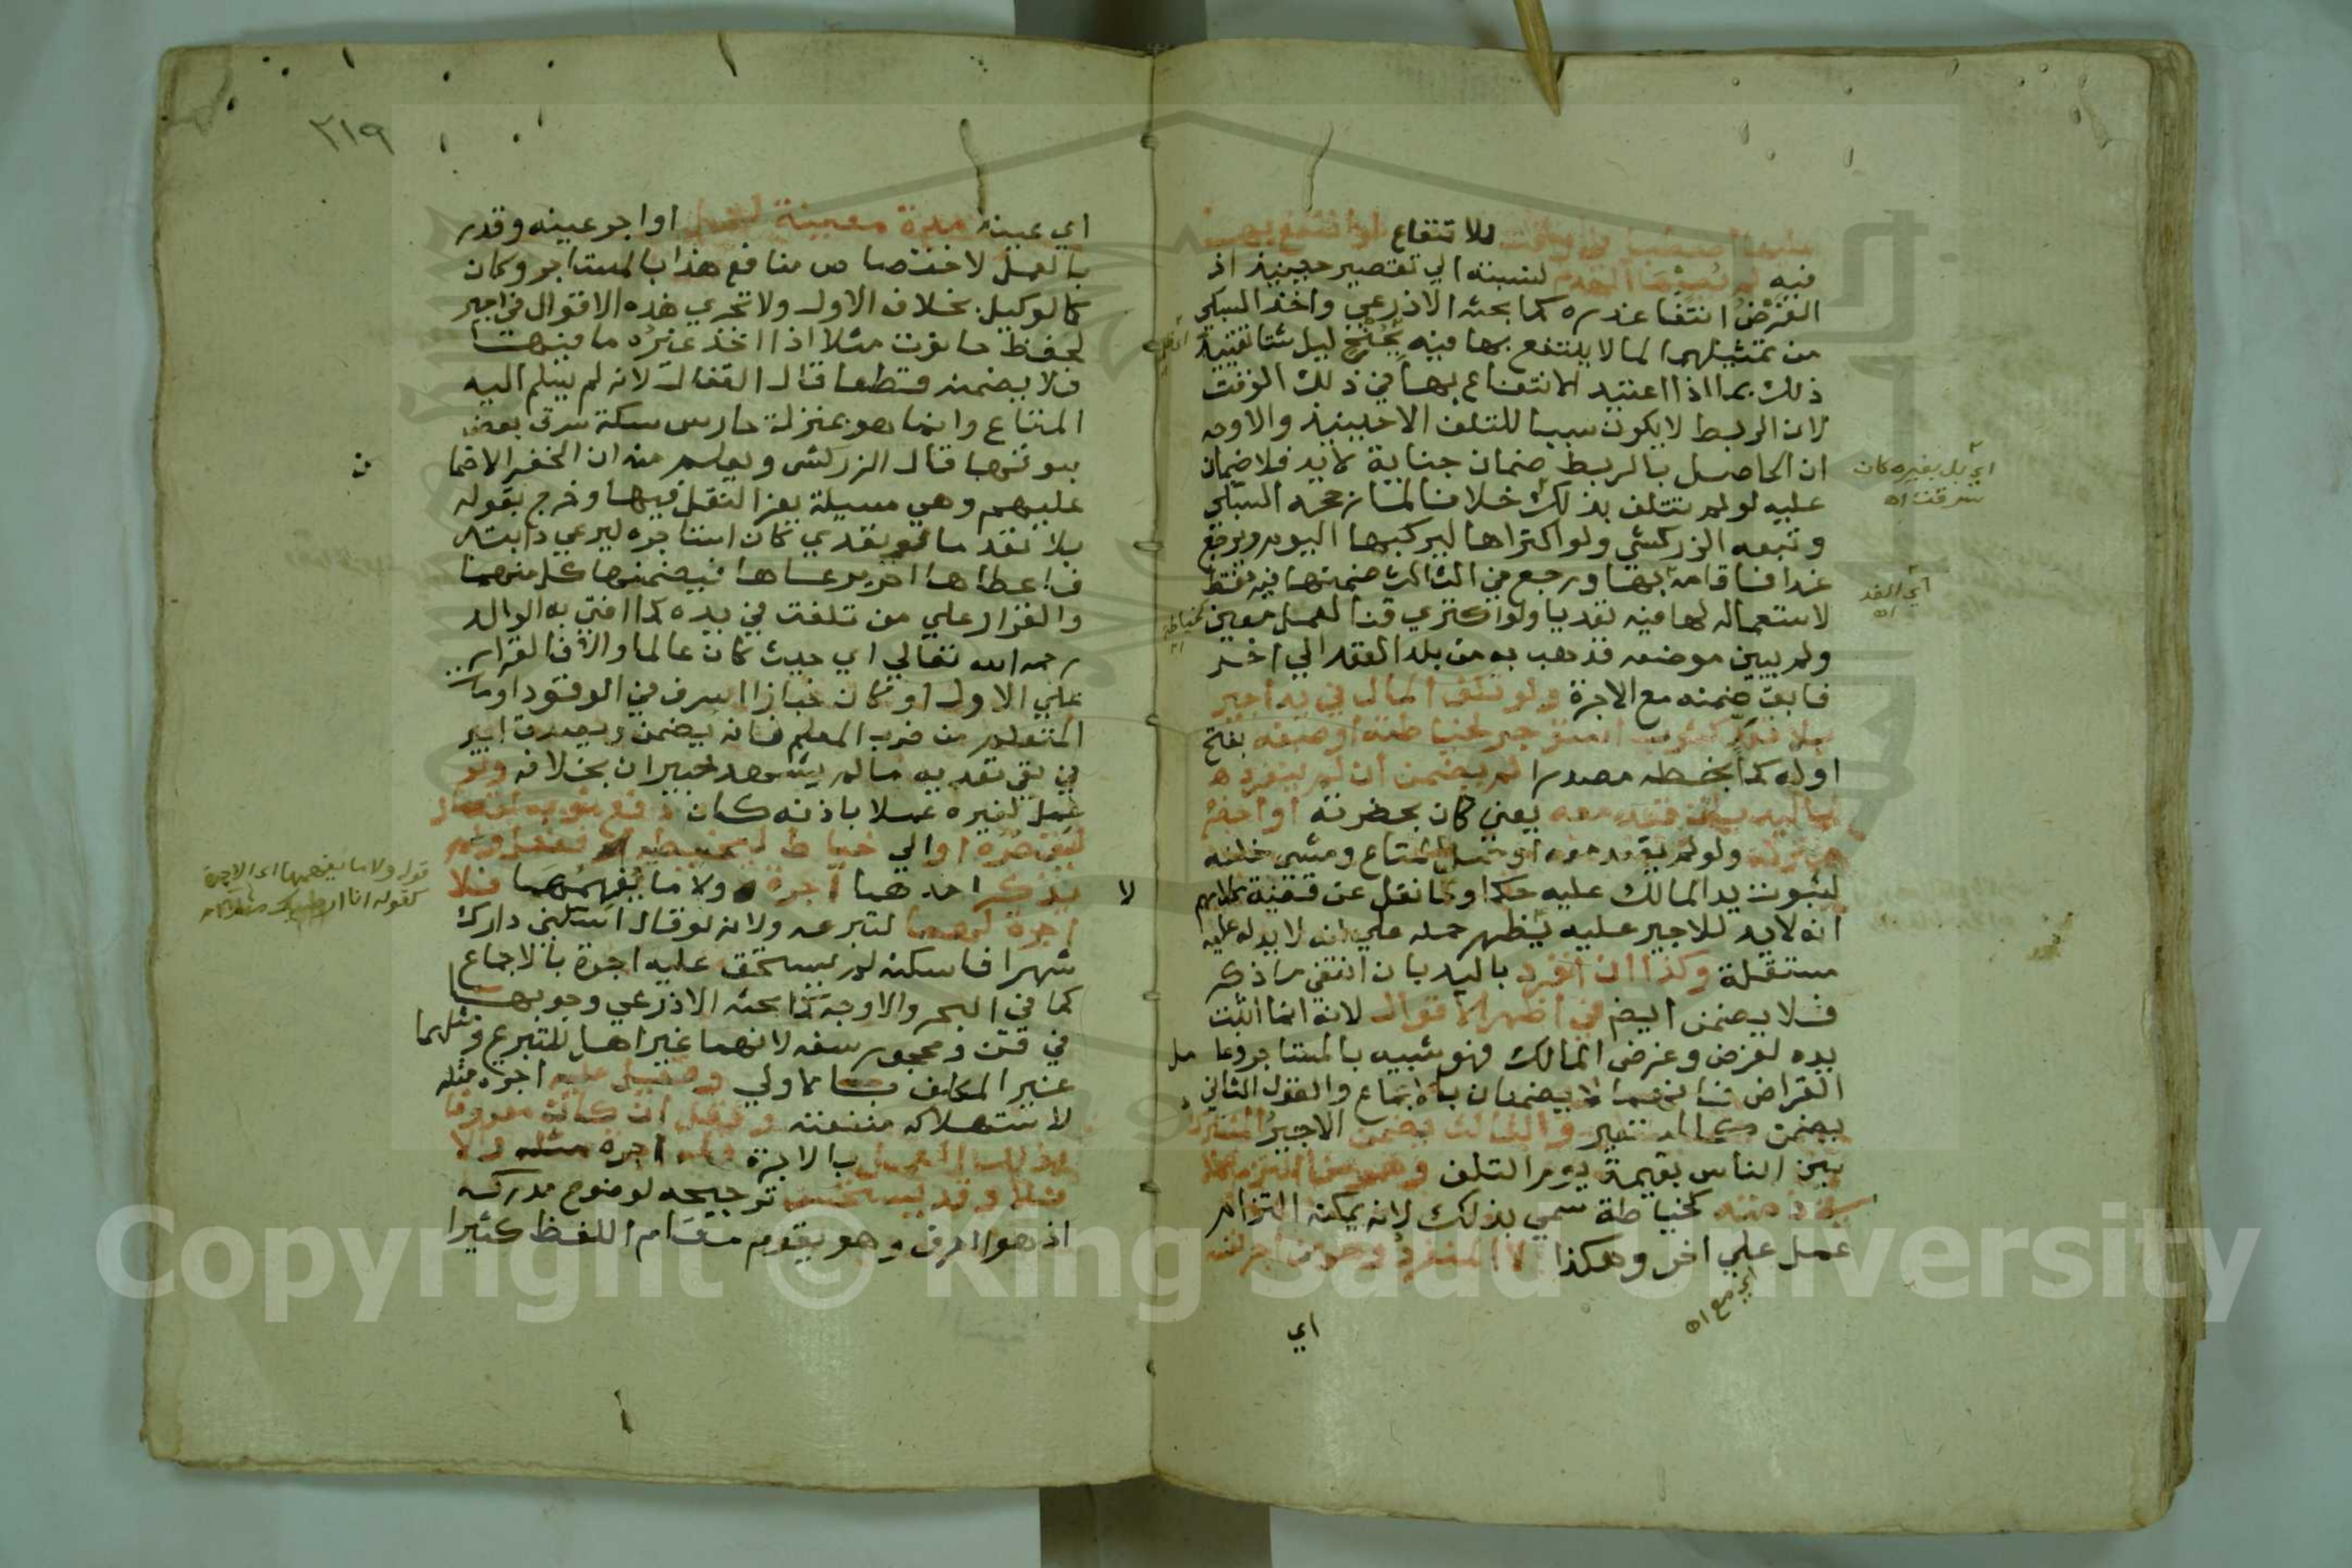 للانتفاع لو انتفع بها
فيه لم يصبها الهدم لنسبته الي تقصير حينيذ اذ
الفرض انتفا عذره كما بحثه الاذرعي واخذ السبكي
من تمثيلهم لما لا ينتفع بها فيه بجنح ليل شتا تقييد
ذلك بما اذا اعتيد الانتفاع بها في ذلك الوقت
لان الربط لا يكون سببا للتلف الا حينيذ والاوجه
ان الحاصل بالربط ضمان جناية لا يد فلا ضمان
عليه لو لم تتلف بذلك خلافا لما رجحه السبكي
وتبعه الزركشي ولو اكتراها ليركبها اليوم ويرجع
غدا فاقام بها ورجع في الثالث ضمنها فيه فقط
لاستعماله لها فيه تعديا ولو اكتري قنا لعمل معين
ولم يبين موضعه فذهب به من بلد العقد الي اخر
فابق ضمنه مع الاجرة ولو تلف المال في يد اجير
بلا تعد كثوب استوجر لخياطته او صبغه بفتح
اوله كما بخطه مصدرا لم يضمن ان لم ينفرد
باليد بان قعد معه يعني كان بحضرته او احضره
منزله ولو لم يقعد معه او حمل المتاع ومشي خلفه
لثبوت يد المالك عليه حكما وما نقل عن قضية كلامهم
انه لا يد للاجير عليه يظهر حمله علي انه لا يد له عليه
مستقلة وكذا ان انفرد باليد بان انتفي ما ذكر
فلا يضمن ايضا في اظهر الاقوال لانه انما اثبت
يده لغرض وغرض المالك فهو شبيه بالمستاجر وعامل
القراض فانهما لا يضمنان بالاجماع والقول الثاني
يضمن كالمستعير والثالث يضمن الاجير المشترك
بين الناس بقيمة يوم التلف وهو من التزم عملا
في ذمته كخياطة سمي بذلك لانه يمكنه التزام
عمل علي اخر وهكذا لا المنفرد وهو من اجر نفسه
اي
اي بل بغيره كان
سرقت اه
اي الغد
اه
كخياطة
اي مع اه
٢١٩
اي عينه مدة معينة لعمل او اجر عينه وقدر
بالعمل لاختصاص منافع هذا بالمستاجر وكان
كالوكيل بخلاف الاول ولا تجري هذه الاقوال في اجير
لحفظ حانوت مثلا اذا اخذ غيره ما فيها
فلا يضمنه قطعا قال القفال لانه لم يسلم اليه
المتاع وانما هو بمنزلة حارس سكة سرق بعض
بيوتها قال الزركشي ويعلم منه ان الخفر الا ضمان
عليهم وهي مسيلة يعز النقل فيها وخرج بقوله
بلا تعد ما لو تعدي كان استاجره ليرعي دابته
فاعطاها اخر يرعاها فيضمنها كل منهما
والقرار علي من تلفت في يده كما افتي به الوالد
رحمه الله تعالي اي حيث كان عالما والا فالقرار
علي الاول او كان خبازا اسرف في الوقود او مات
المتعلم من ضرب المعلم فانه يضمن ويصدق اجير
في نفي تعديه ما لم يشهد خبيران بخلافه ولو
عمل لغيره عملا باذنه كان دفع ثوبه لقصار
ليقصره او الي خياط ليخيطه ففعل ولم
يذكر احدهما اجرة ولا ما يفهمها فلا
اجرة لهما لتبرعه ولانه لو قال اسكني دارك
شهرا فاسكنه لم يستحق عليه اجرة بالاجماع
كما في البحر والاوجه كما بحثه الاذرعي وجوبها
في قن ومحجور سفه لانهما غير اهل للتبرع ومثلهما
غير المكلف بالاولي وقيل عليه اجرة مثله
لاستهلاكه منفعته وقيل ان كان معروفا
بذلك العمل بالاجرة فله اجرة مثله والا
فلا وقد يستحسن ترجيحه لوضوح مدركه
اذ هو العرف وهو يقوم مقام اللفظ كثيرا
لا
قوله ولا ما يفهمها اي الاجرة